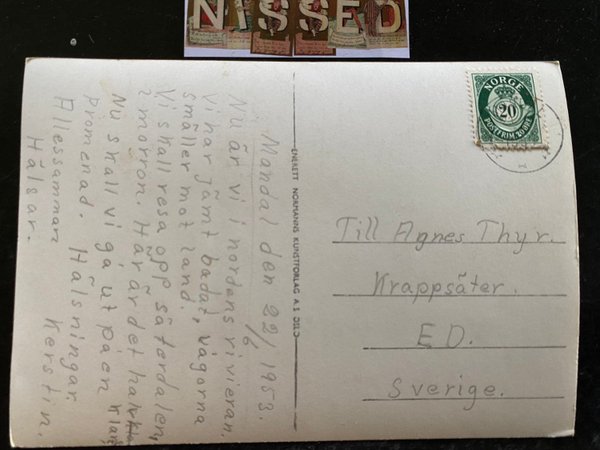 NISSED
Mandal den 22/6 1953.
Nu är vi i nordens rivieran.
Vi har jämt badat, vågorna
smäller mot land.
Vi skall resa opp säterdalen,
imorron. Här är det
Nu skall vi gå ut på en
Promenad. Hälsningar.
Allessamman Kerstin.
Hälsar.
ENERETT NORMANNS KUNSTFORLAG A.S OSLO
NORGE
20
POSTFRIM.
Till Agnes Thyr.
Krappsäter.
ED.
Sverige.